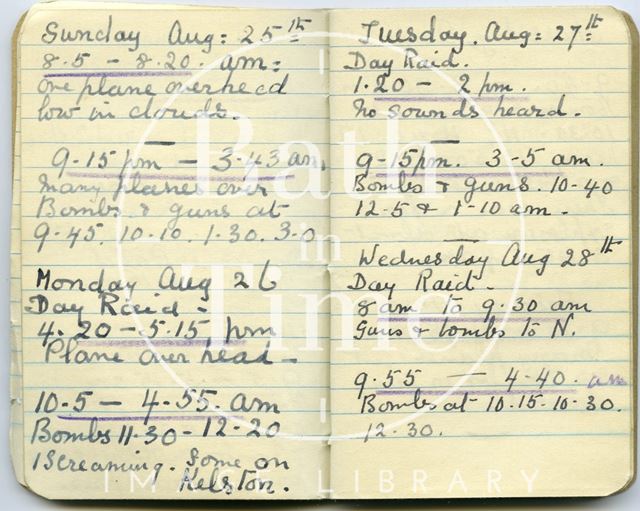 Sunday Aug: 25th
8.5 - 8.20. am:
one plane overhead
low in clouds.
9.15 pm - 3.43 am.
Many planes over
Bombs & guns at
9.45. 10.10. 1.30. 3.0
Monday Aug 26
Day Raid -
4.20 - 5.15 pm
Plane over head -
10.5 - 4.55. am
Bombs 11.30 - 12-20
1 Screaming. Some on
Kelston.
Tuesday. Aug: 27th
Day Raid.
1.20 - 2 pm.
No sounds heard.
9-15pm. 3-5 am.
Bombs & guns. 10-40
12.5 & 1-10 am.
Wednesday Aug 28th
Day Raid -
8 am to 9.30 am
Guns & bombs to N.
9.55 - 4-40. am
Bombs at 10.15-10-30.
12.30.
Bath
in
Time
IMAGE LIBRARY